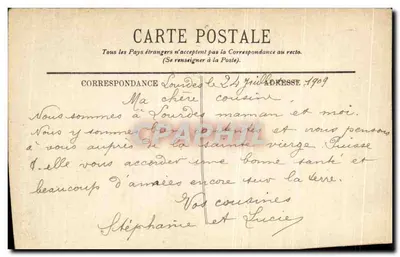 CARTE POSTALE
Tous les Pays étrangers n'acceptent pas la Correspondance au recto.
(Se renseigner à la Poste).
CORRESPONDANCE ADRESSE
Lourdes le 24 Juillet 1909
Ma chère cousine,
Nous sommes à Lourdes maman et moi.
Nous y sommes et nous pensons
à vous auprès de la sainte vierge Puisse
t-elle vous accorder une bonne santé et
beaucoup d'années encore sur la terre.
Vos cousines
Stéphanie et Lucie
CPARAMA